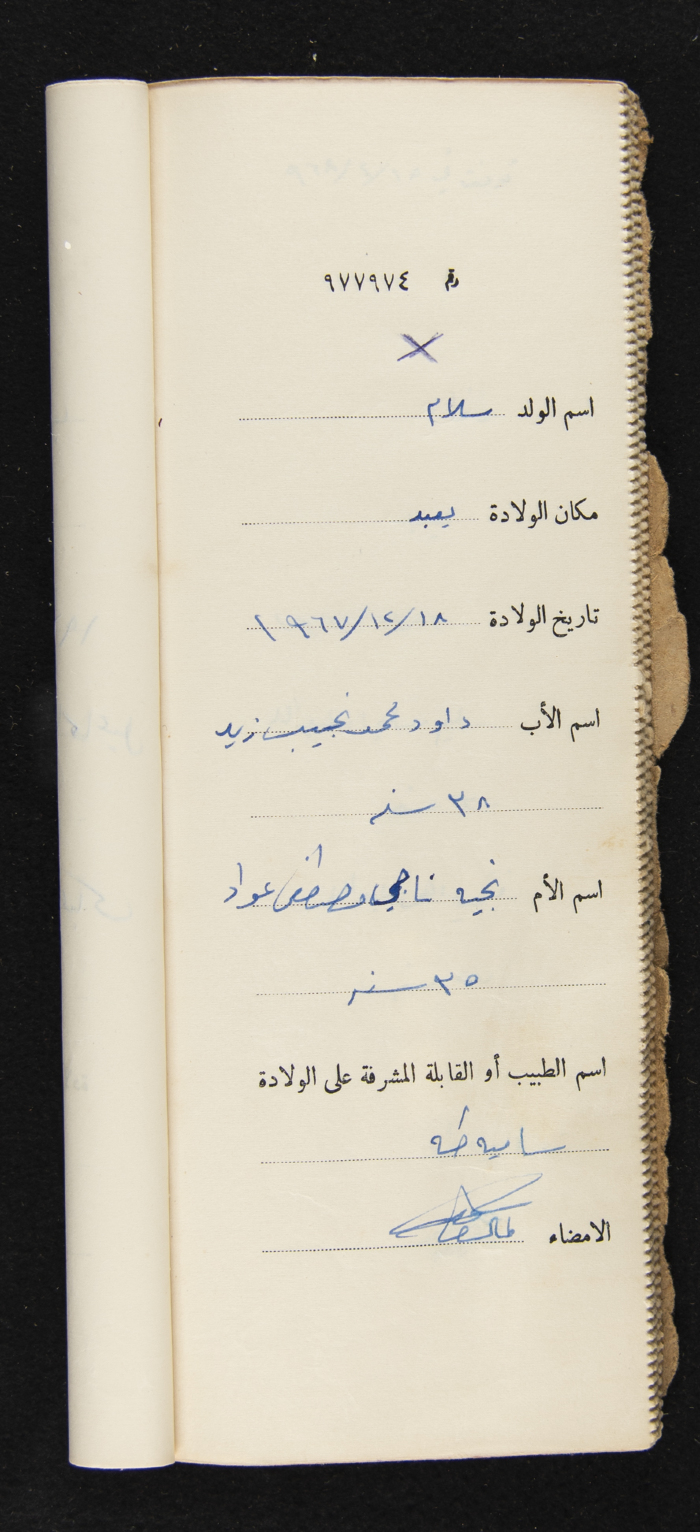 رقم ٩٧٧٩٧٤
اسم الولد سلام
مكان الولادة يعبد
تاريخ الولادة ١٨/١٢/١٩٦٧
اسم الأب داود محمد نجيب زيد
٣٨ سنه
اسم الأم نجيه ناجي مصطفى عواد
٣٥ سنه
اسم الطبيب أو القابلة المشرفة على الولادة
ساميه طه
الامضاء